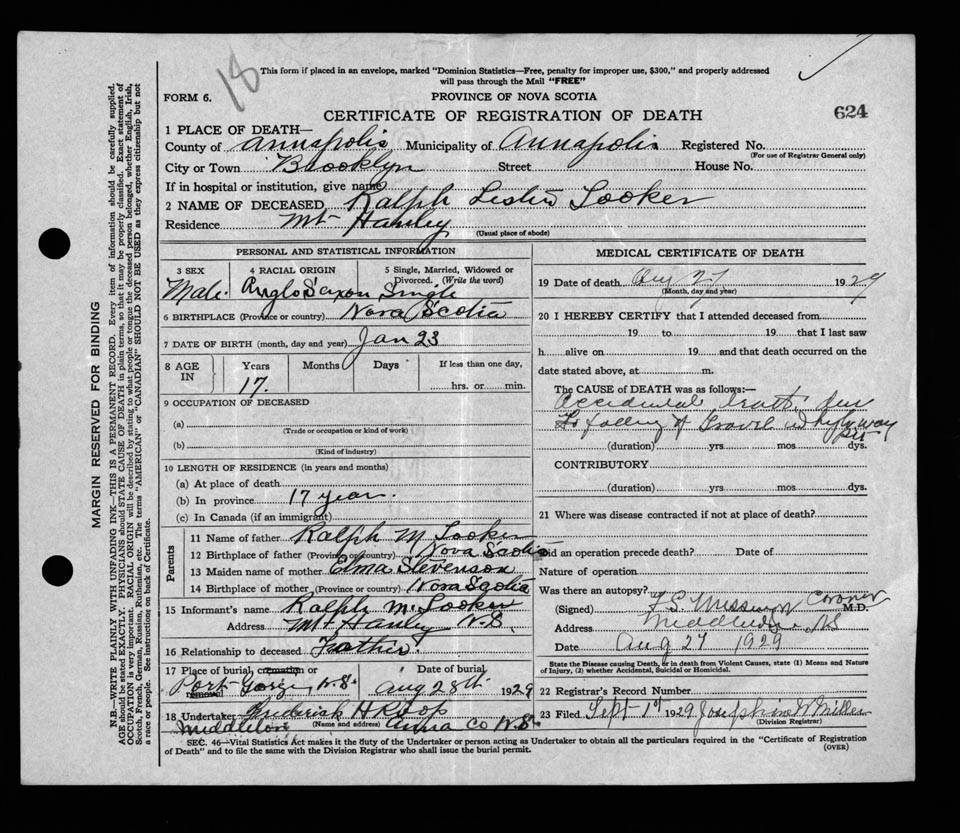 18
This form if placed in an envelope, marked "Dominion Statistics—Free, penalty for improper use, $300," and properly addressed
will pass through the Mail "FREE"
FORM 6.
PROVINCE OF NOVA SCOTIA
CERTIFICATE OF REGISTRATION OF DEATH
624
1 PLACE OF DEATH—
County of Annapolis Municipality of Annapolis Registered No.
(For use of Registrar General only)
City or Town Brooklyn Street House No.
If in hospital or institution, give name
2 NAME OF DECEASED Ralph Lester Looker
Residence Mt Hanley
(Usual place of abode)
PERSONAL AND STATISTICAL INFORMATION
3 SEX
Male
4 RACIAL ORIGIN
Anglo Saxon
5 Single, Married, Widowed or
Divorced. (Write the word)
Single
6 BIRTHPLACE (Province or country) Nova Scotia
7 DATE OF BIRTH (month, day and year) Jan 23
8 AGE
IN
Years
17
Months
Days
If less than one day,
hrs. or min.
9 OCCUPATION OF DECEASED
(a)
(Trade or occupation or kind of work)
(b)
(Kind of industry)
10 LENGTH OF RESIDENCE (in years and months)
(a) At place of death
(b) In province 17 years.
(c) In Canada (if an immigrant)
Parents
11 Name of father Ralph M Looker
12 Birthplace of father (Province or country) Nova Scotia
13 Maiden name of mother Elma Stevenson
14 Birthplace of mother (Province or country) Nova Scotia
15 Informant's name Ralph M Looker
Address Mt Hanley N.S.
16 Relationship to deceased Father
17 Place of burial, cremation or
removal
Port George N.S.
Date of burial
Aug 28th 1929
18 Undertaker Frederick H Roop
(Name and address)
Middleton Anna Co N.S.
MEDICAL CERTIFICATE OF DEATH
19 Date of death Aug 27 1929
(Month, day and year)
20 I HEREBY CERTIFY that I attended deceased from
19 to 19 that I last saw
h alive on 19 and that death occurred on the
date stated above, at m.
The CAUSE OF DEATH was as follows:—
Accidental death due
to falling of Gravel in highway
pit
(duration) yrs. mos dys.
CONTRIBUTORY
(duration) yrs. mos dys.
21 Where was disease contracted if not at place of death?
Did an operation precede death? Date of
Nature of operation
Was there an autopsy?
(Signed) Coroner M.D.
Address Middleton NS
Date Aug 27 1929
State the Disease causing Death, or in death from Violent Causes, state (1) Means and Nature
of Injury, (2) whether Accidental, Suicidal or Homicidal.
22 Registrar's Record Number
23 Filed Sept 1st 1929 W Miller
(Division Registrar)
SEC. 46—Vital Statistics Act makes it the duty of the Undertaker or person acting as Undertaker to obtain all the particulars required in the "Certificate of Registration
of Death" and to file the same with the Division Registrar who shall issue the burial permit.
(OVER)
MARGIN RESERVED FOR BINDING
N.B.—WRITE PLAINLY WITH UNFADING INK—THIS IS A PERMANENT RECORD. Every item of information should be carefully supplied.
AGE should be stated EXACTLY. PHYSICIANS should STATE CAUSE OF DEATH in plain terms, so that it may be properly classified. Exact statement of
OCCUPATION is very important. RACIAL ORIGIN will be described by stating to what people or tongue the deceased person belonged, whether English, Irish,
Scotch, French, German, Russian, Ruthenian, etc. The terms "AMERICAN" or "CANADIAN" SHOULD NOT BE USED as they express citizenship but not
a race or people. See instructions on back of Certificate.